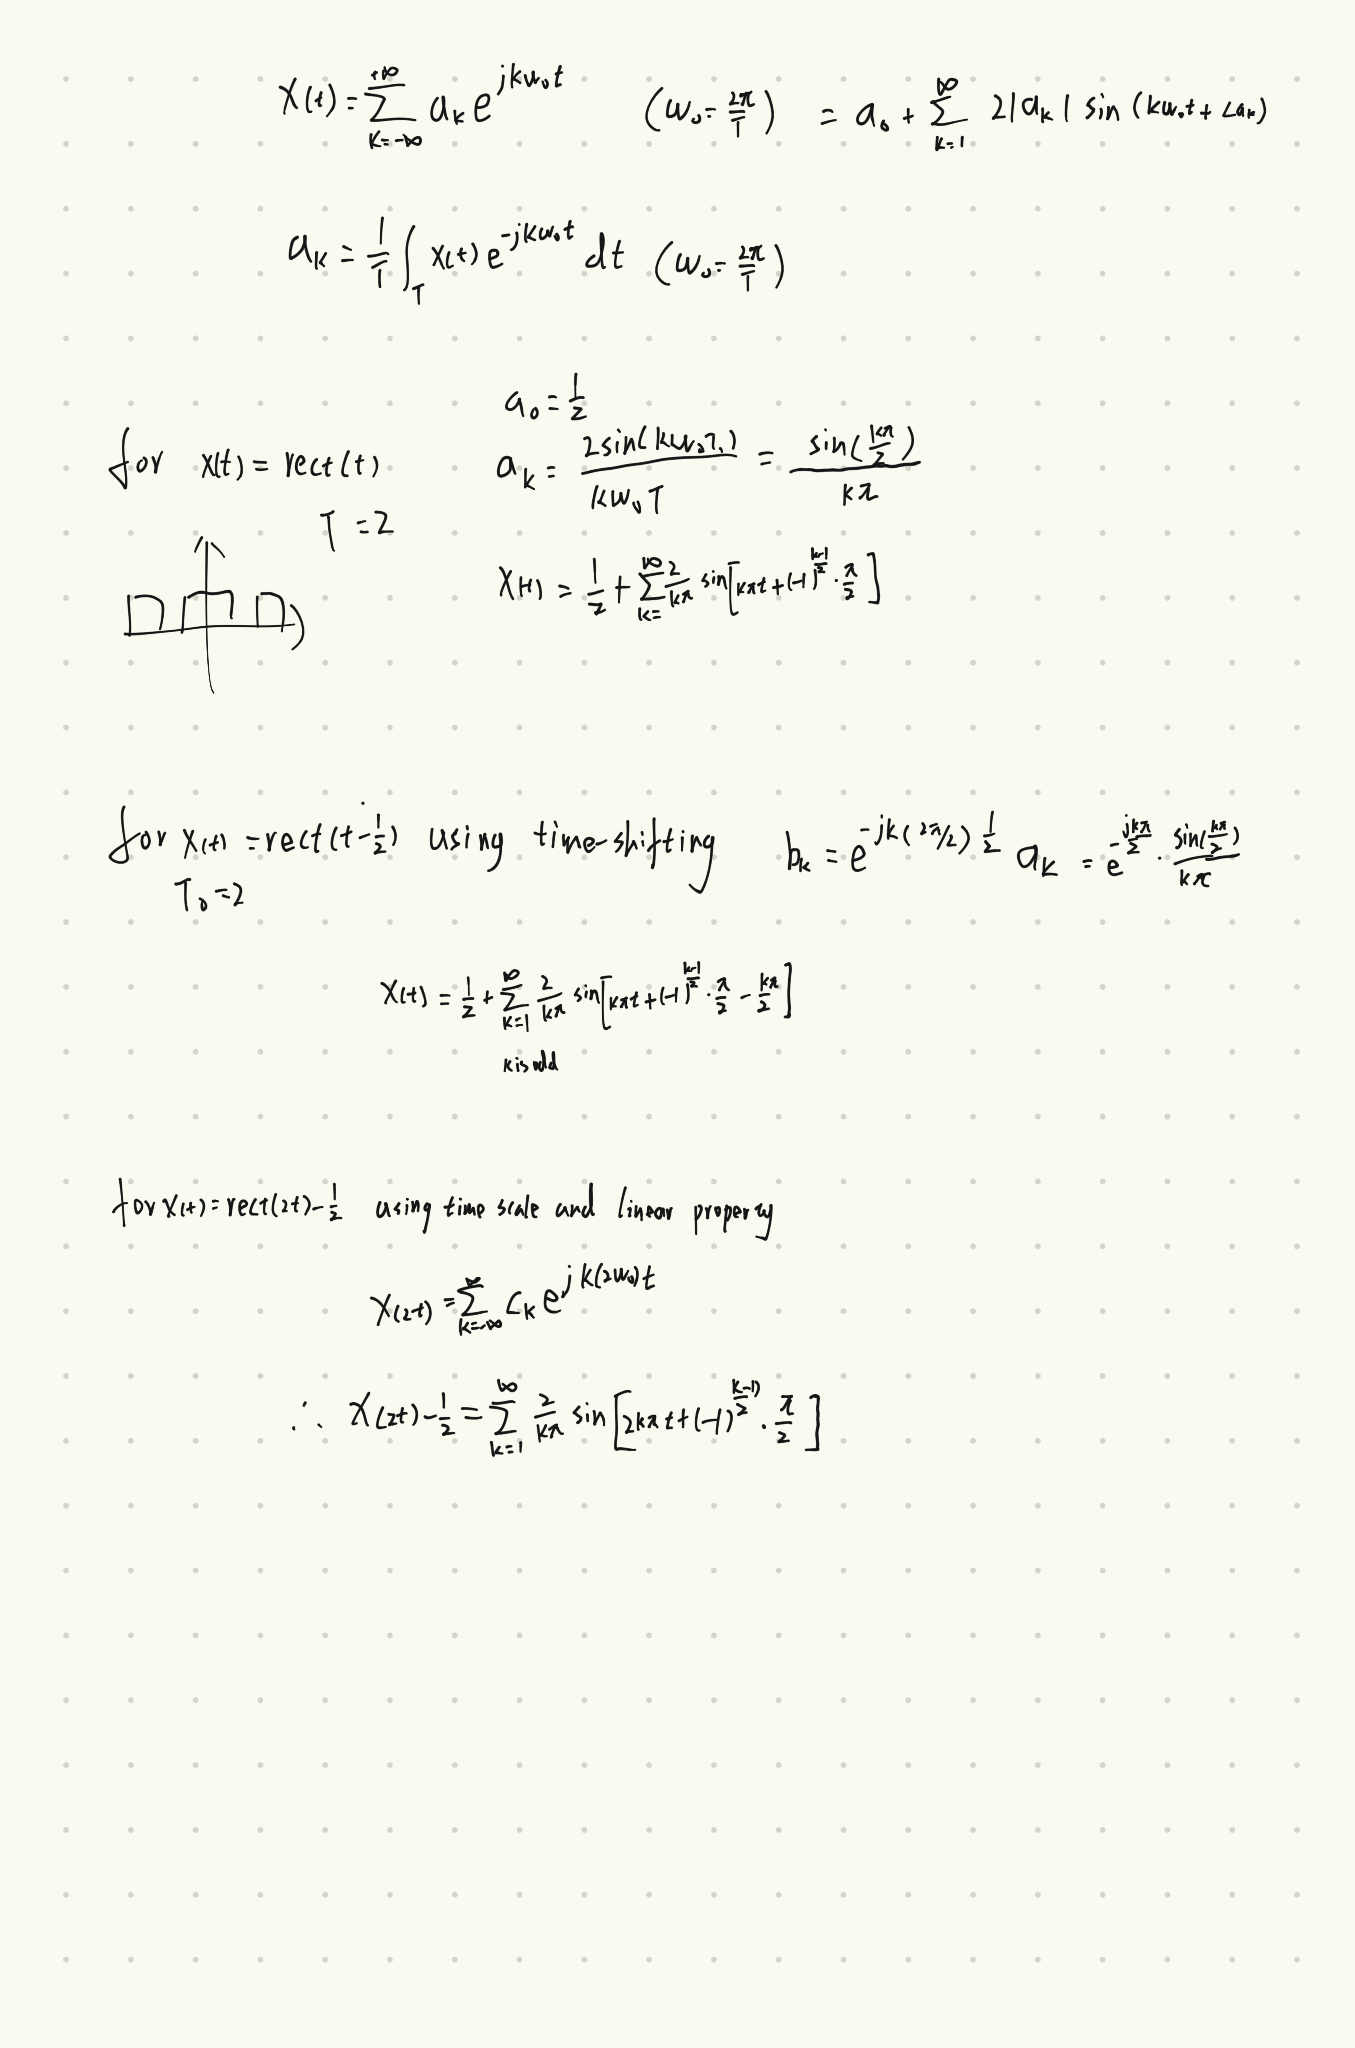 X(t) = ∑_{k=-∞}^{+∞} a_k e^{jkω₀t} (ω₀ = 2π/T) = a₀ + ∑_{k=1}^{∞} 2|a_k| sin(kω₀t + ∠a_k)
a_k = 1/T ∫_T x(t) e^{-jkω₀t} dt (ω₀ = 2π/T)
a₀ = 1/2
for x(t) = rect(t) a_k = 2sin(kω₀T₁)/(kω₀T) = sin(kπ/2)/(kπ)
T = 2
X(t) = 1/2 + ∑_{k=}^{∞} 2/(kπ) sin[kπt + (-1)^{(k-1)/2} · π/2]
for X(t) = rect(t - 1/2) using time-shifting b_k = e^{-jk(2π/2) 1/2} a_k = e^{-jkπ/2} · sin(kπ/2)/(kπ)
T₀ = 2
X(t) = 1/2 + ∑_{k=1}^{∞} 2/(kπ) sin[kπt + (-1)^{(k-1)/2} · π/2 - kπ/2]
k is odd
for X(t) = rect(2t) - 1/2 using time scale and linear property
X(2t) = ∑_{k=-∞}^{∞} C_k e^{jk(2ω₀)t}
∴ X(2t) - 1/2 = ∑_{k=1}^{∞} 2/(kπ) sin[2kπt + (-1)^{(k-1)/2} · π/2]